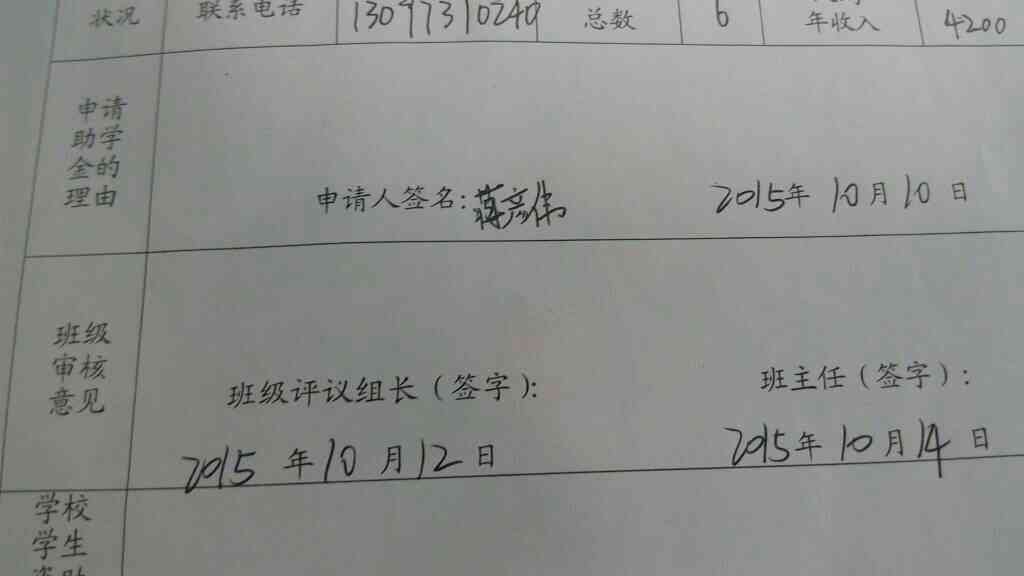 状况 联系电话 13097310240 总数 6 年收入 4200
申请
助学
金的
理由
申请人签名:蒋彦伟 2015年10月10日
班级
审核
意见
班级评议组长(签字): 班主任(签字):
2015年10月12日 2015年10月14日
学校
学生
资助